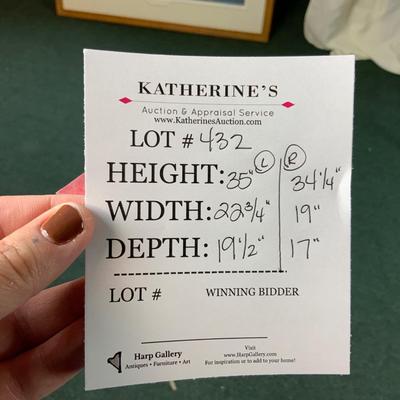 KATHERINE'S
Auction & Appraisal Service
www.KatherinesAuction.com
LOT # 432
HEIGHT: 35" L R 34 1/4"
WIDTH: 22 3/4" 19"
DEPTH: 19 1/2" 17"
LOT # WINNING BIDDER
Harp Gallery
Antiques • Furniture • Art
Visit
www.HarpGallery.com
For inspiration or to add to your home!